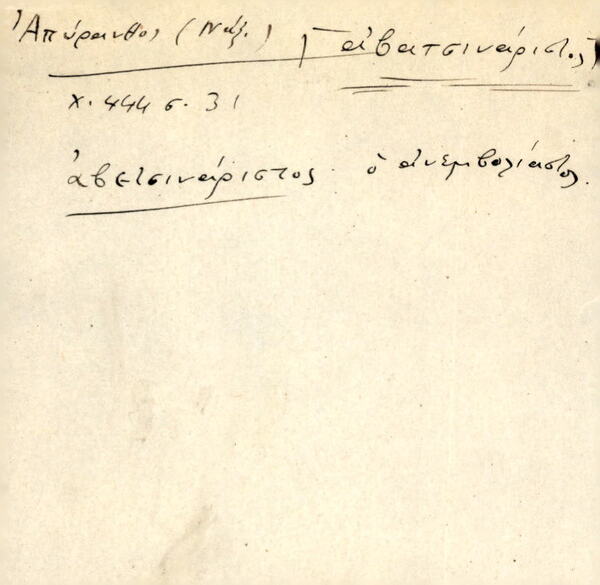 Ἀπύρανθος (Νάξ.) [ἀβατσινάριστος]
χ. 444 σ. 31
ἀβετσινάριστος · ὁ ἀνεμβολίαστος.